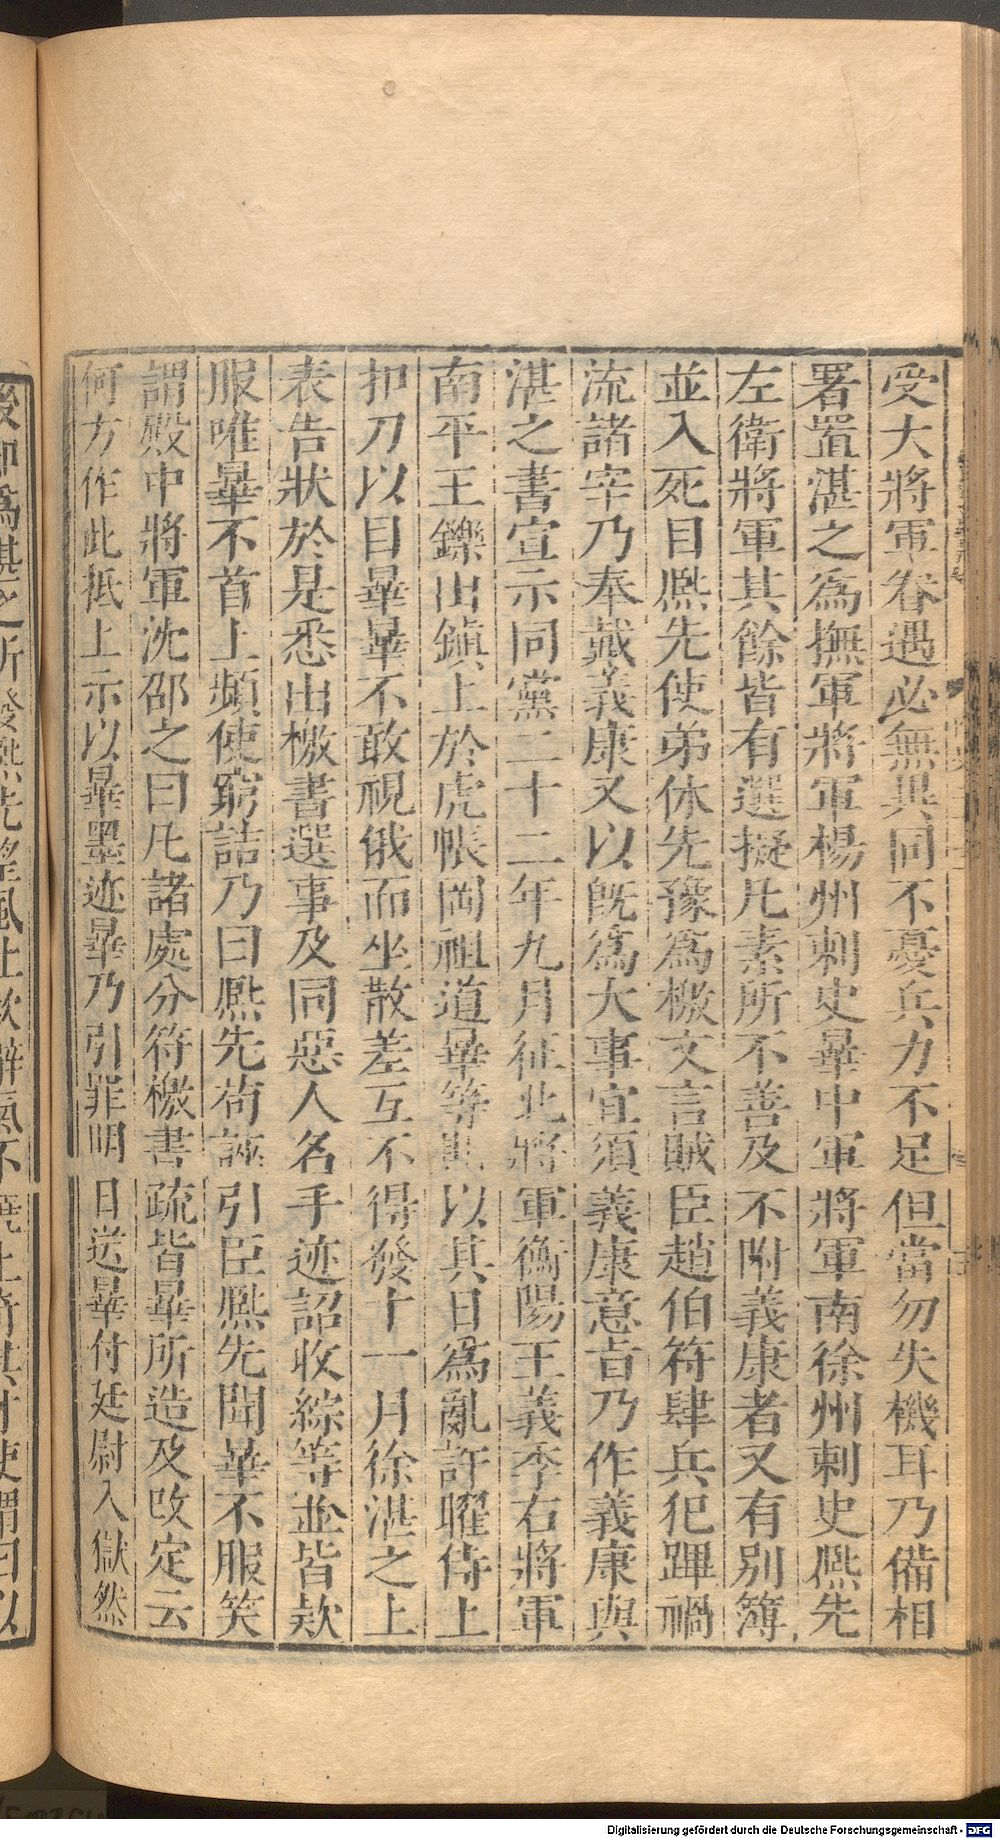 受大將軍眷遇必無異同不憂兵力不足但當勿失機耳乃備相
署置湛之爲撫軍將軍楊州刺史曅中軍將軍南徐州刺史熈先
左衛將軍其餘皆有選擬凡素所不善及不附義康者又有別簿
並入死目熈先使弟休先豫爲檄文言賊臣趙伯符肆兵犯蹕禍
流諸宰乃奉戴義康又以旣爲大事宜須義康意㫖乃作義康與
湛之書宣示同黨二十二年九月征北將軍衡陽王義季右將軍
南平王鑠出鎮上於虎帳岡祖道曅等期以其日爲亂許曜侍上
扣刀以目曅曅不敢視俄而坐散差互不得發十一月徐湛之上
表告狀於是悉出檄書選事及同惡人名手迹詔收綜等並皆欵
服唯曅不首上頻使窮詰乃曰熈先苟誣引臣熈先聞曅不服笑
謂殿中將軍沈邵之曰凡諸處分符檄書疏皆曅所造及改定云
何方作此抵上示以曅墨迹曅乃引罪明日送曅付廷尉入獄然
Digitalisierung gefördert durch die Deutsche Forschungsgemeinschaft - DFG